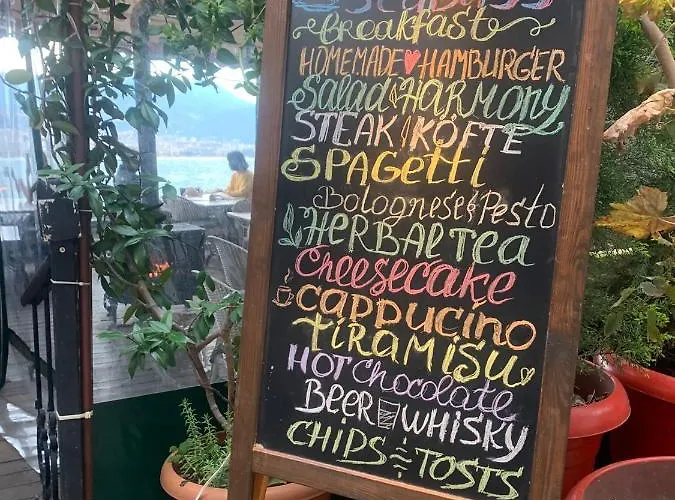 Breakfast
HOMEMADE HAMBURGER
Salad HARMONY
STEAK KÖFTE
SPAGETTI
Bolognese & Pesto
HERBAL TEA
CHEESECAKE
CAPPUCINO
TIRAMISU
HOT Chocolate
BEER WHISKY
CHIPS TOSTS